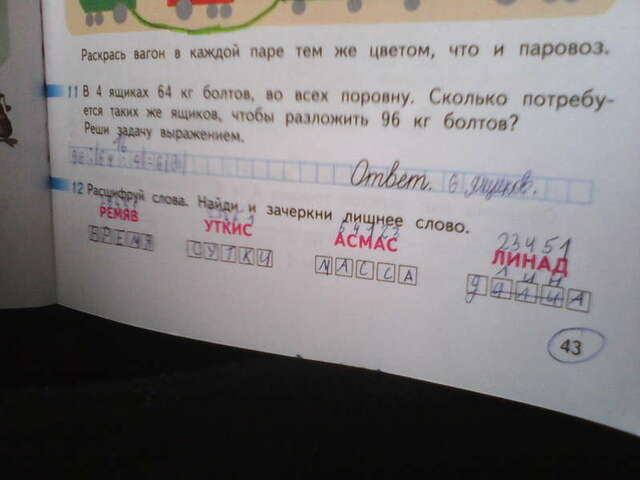 Раскрась вагон в каждой паре тем же цветом, что и паровоз.
11 В 4 ящиках 64 кг болтов, во всех поровну. Сколько потребу-
ется таких же ящиков, чтобы разложить 96 кг болтов?
Реши задачу выражением.
16
96:(64:4)=6(я)
Ответ. 6 ящиков.
12 Расшифруй слова. Найди и зачеркни лишнее слово.
23451
РЕМЯВ УТКИС АСМАС ЛИНАД
ВРЕМЯ СУТКИ МАССА Д А